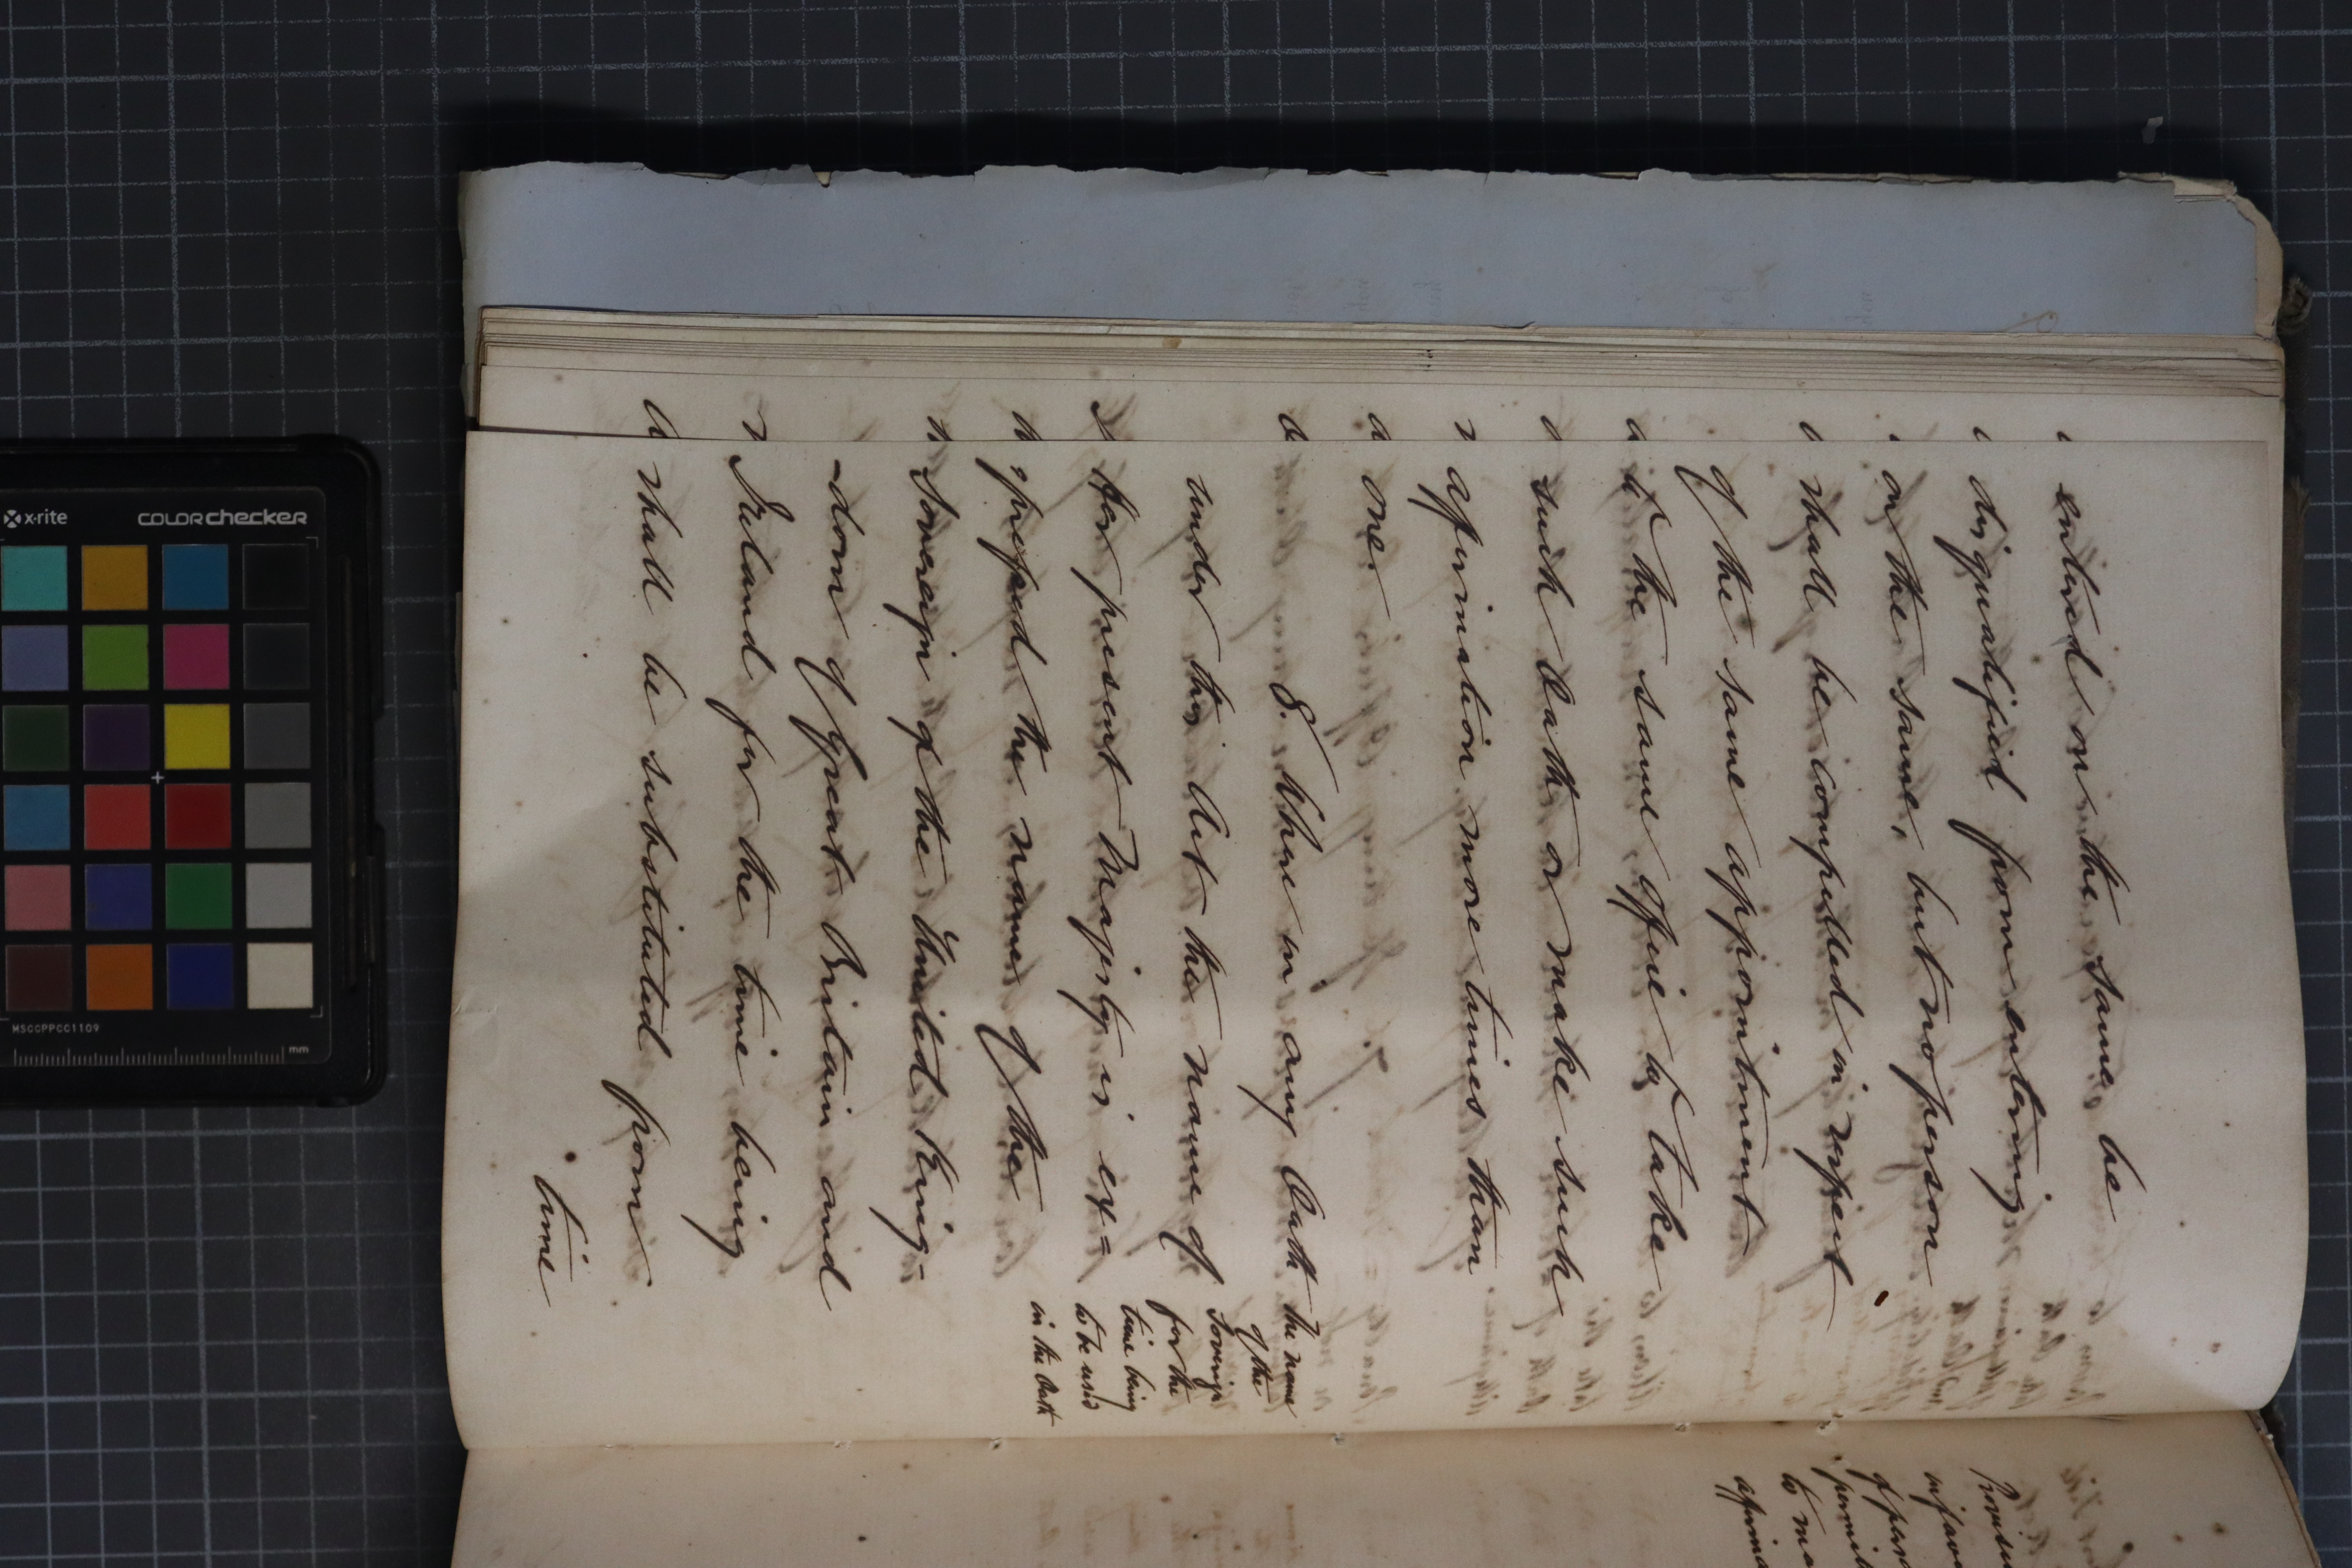 entered on the same be
disqualified from entering
on the same, but no person
shall be compelled in respect
of the same appointment
to the same office to take
such Oath or make such
affirmation more times than
one.
8. Where in any Oath
under this Act the name of
her present Majesty is ex=
pressed the name of the
Sovereign of the United King-
-dom of Great Britain and
Ireland for the time being
shall be substituted from
time
The name
of the
Sovereign
for the
time being
to be used
in the Oath
Provision
in favor
of per
permit
to ma
affirma
x-rite
colorchecker
MSCCPPCC1109
mm